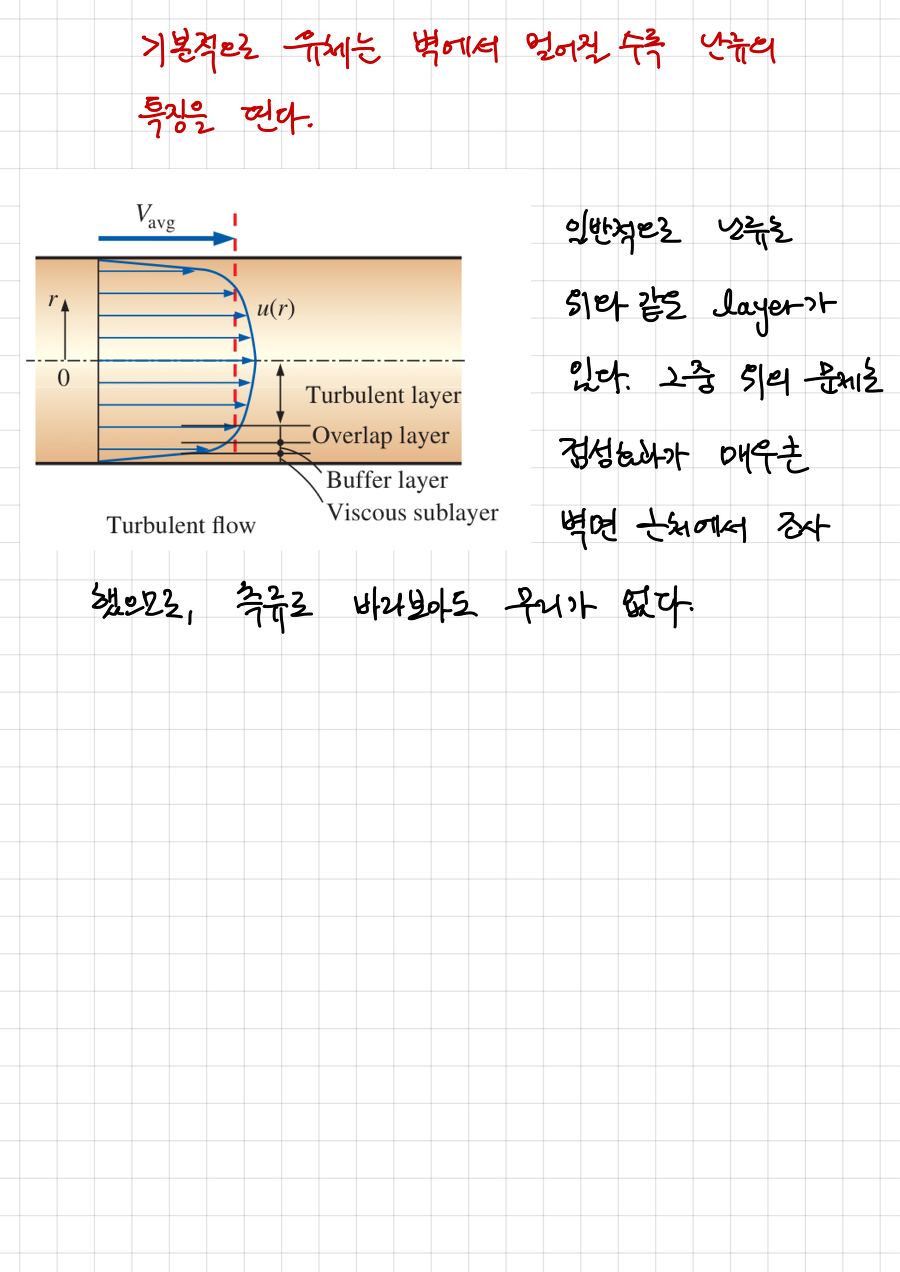 기본적으로 유체는 벽에서 멀어질 수록 난류의
특징을 띤다.
V_avg
r
u(r)
0
Turbulent layer
Overlap layer
Buffer layer
Viscous sublayer
Turbulent flow
일반적으로 난류는
위와 같은 layer가
있다. 그중 위의 문제는
점성효과가 매우큰
벽면 근처에서 조사
했으므로, 층류로 바라보아도 무리가 없다.